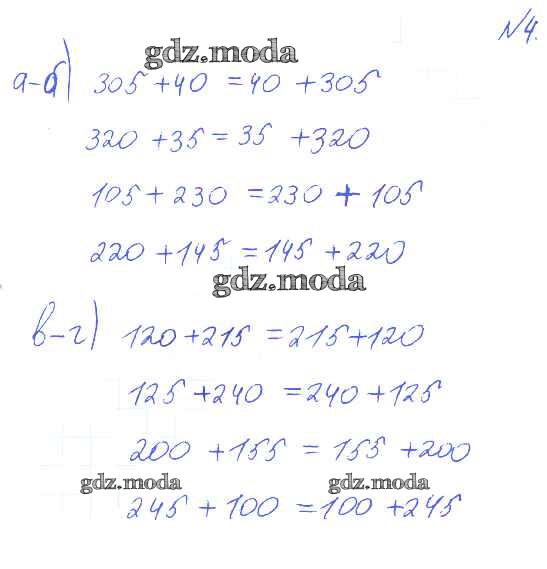 №4.
gdz.moda
а-б) 305+40 =40 +305
320 +35 = 35 +320
105 + 230 =230 + 105
220 +145 =145 +220
gdz.moda
в-г) 120+215 =215+120
125 +240 =240 +125
200 +155 = 155 +200
gdz.moda gdz.moda
245 +100 =100 +245